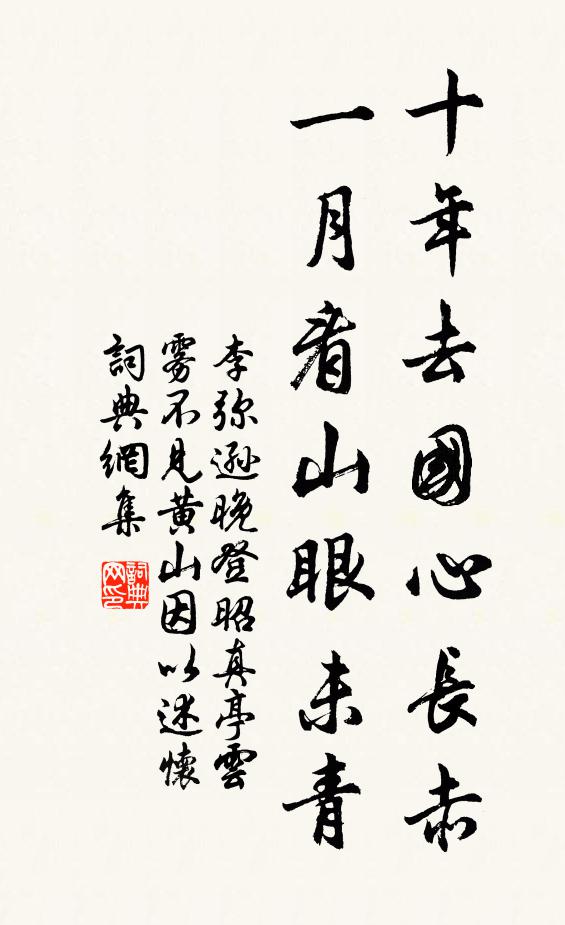 十年去國心長赤
一月看山眼未青
李弥遜晚登昭真亭雲
霧不見黄山因以述懷
詞典網集
詞典网印